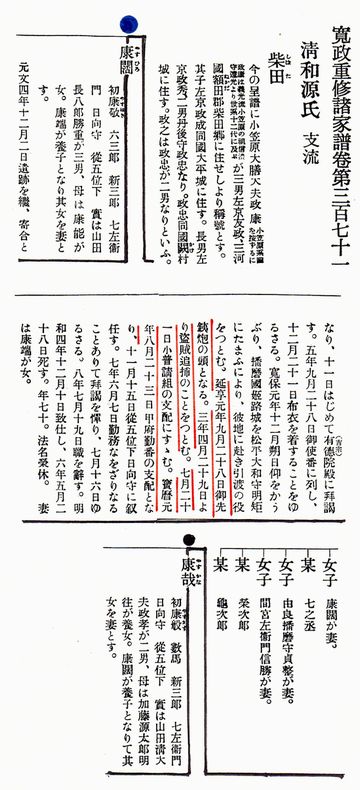 寛政重修諸家譜卷第三百七十一
清和源氏 支流
柴田
しばた
今の呈譜に小笠原大膳大夫政康
が三男左京友政三河
國額田郡柴田鄕に住せしより稱號とす。
其子左京政成同國大平城に住す。長男左
京政秀二男丹後守政忠なり。政忠同國
村
城に住す。政之は政忠が二男なりといふ。
康闊
初康敬 六三郎 新三郎 七左衞
門 日向守 從五位下 實は山田
長八郎勝重が三男、母は康能が
女。康端が養子となり其女を妻と
す。
元文四年十二月二日遺跡を繼、寄合と
なり、十一日はじめて有德院殿に拜謁
す。五年九月二十八日御使番に列し、
十二月二十一日布衣を着することをゆ
るさる。寬保元年十二月朔日仰をかう
ぶり、播磨國姬路城を松平大和守明矩
にたまふにより、彼地に赴き引渡の役
をつとむ。延享元年九月二十八日御先
鐵炮の頭となる。三年四月二十九日よ
り盜賊追捕のことをつとむ。七月二十
一日小普請組の支配にすゝむ。寶曆元
年八月二十三日甲府勤番の支配とな
り、十一月十五日從五位下日向守に叙
任す。七年六月七日勤務なをざりなる
ことありて拜謁を憚り、七月十六日ゆ
るさる。八年七月十九日職を辭す。明
和四年十二月十日致仕し、六年五月二
十八日死す。年七十。法名榮休。 妻
は康端が女。
女子 康闊が妻。
某 七之丞
女子 由良播磨守貞整が妻。
女子 間宮左衞門信勝が妻。
某 榮次郎
某 龜次郎
康哉
初康毅 數馬 新三郎 七左衞門
日向守 從五位下 實は山田淸大
夫政孝が二男、母は加藤源太郎明
往が養女。康闊が養子となりて其
女を妻とす。